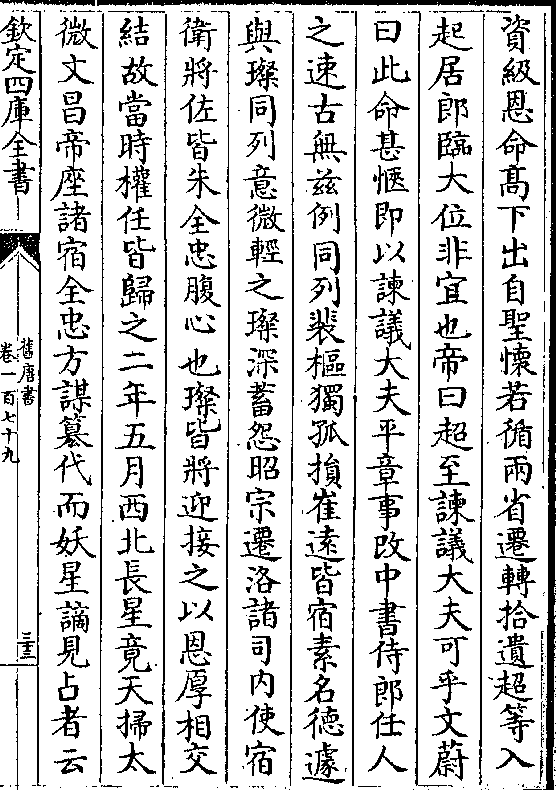 資級恩命髙下出自聖懷若循兩省遷轉拾遺超等入
起居郎臨大位非宜也帝曰超至諫議大夫可乎文蔚
曰此命甚愜即以諫議大夫平章事改中書侍郎任人
之速古無兹例同列裴樞獨孤損崔逺皆宿素名徳遽
與璨同列意微輕之璨深蓄怨昭宗遷洛諸司内使宿
衛將佐皆朱全忠腹心也璨皆將迎接之以恩厚相交
結故當時權任皆歸之二年五月西北長星竟天掃太
微文昌帝座諸宿全忠方謀篡代而妖星謫見占者云
欽定四庫全書
舊唐書
卷一百七十九
三十三